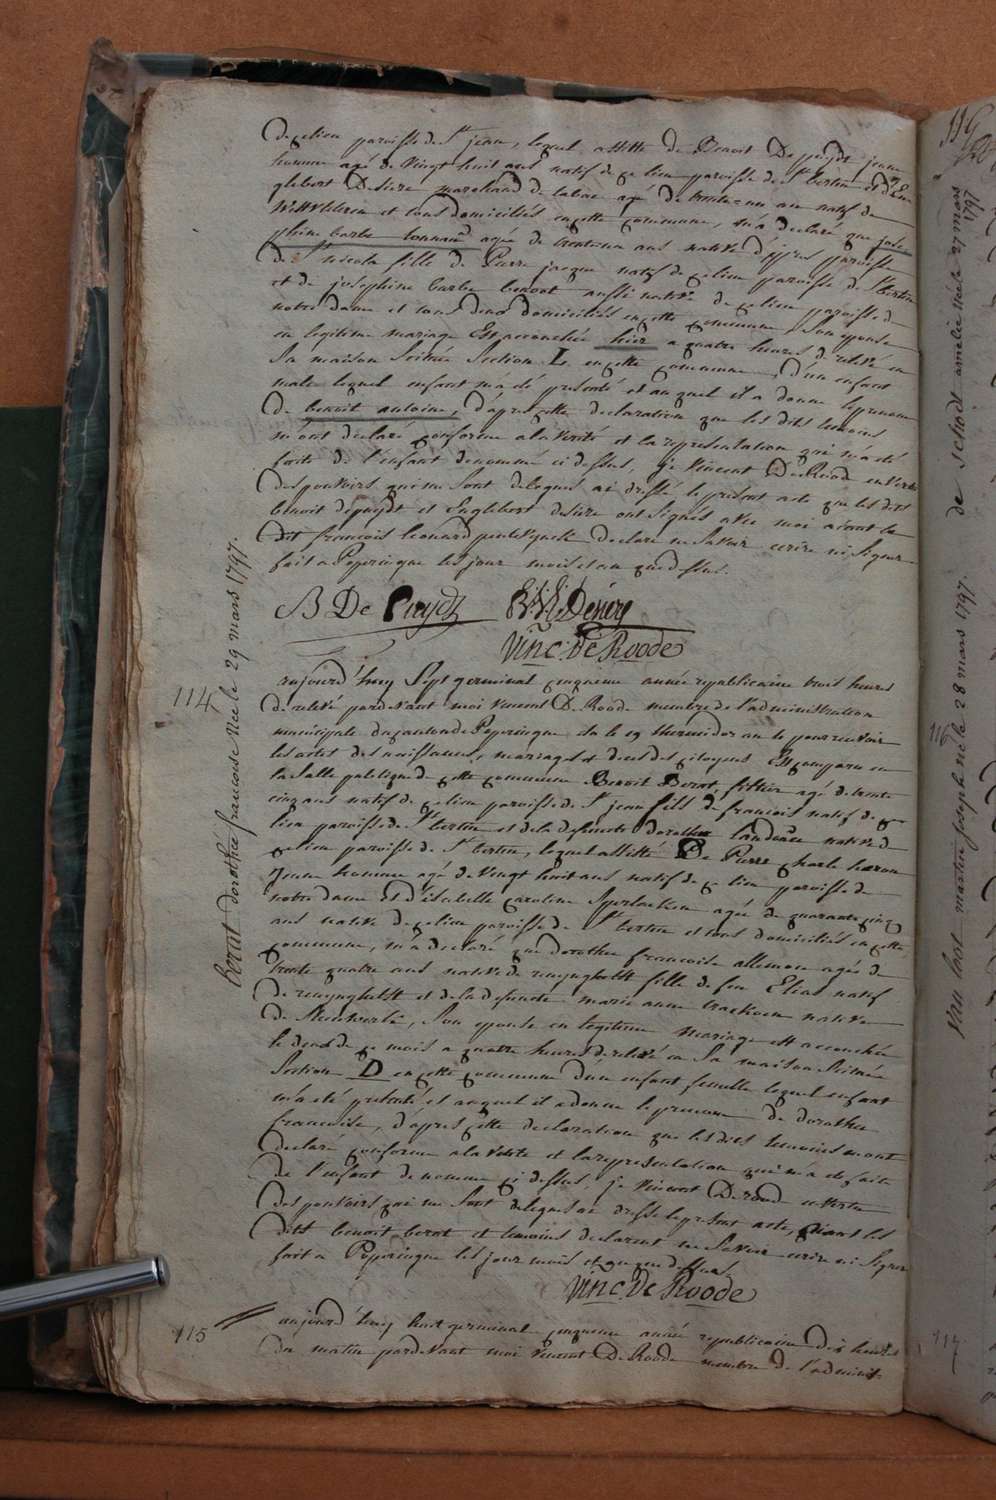 de ce lieu paroisse de St jean, lequel assisté de Benoit De puydt jeune
homme agé de vingt huit ans natif de ce lieu paroisse de St bertin et d'En
glebert Desire marchand de tabac agé de trente un ans natif de
et tous domiciliés en cette commune, m'a declaré que jose
phine barbe agée de trente un ans native d'ypres paroisse
de St nicola fille de Pierre jacque natif de ce lieu paroisse de St bertin
et de josephine barbe benoot aussi native de ce lieu paroisse de
notre dame et tous deux domiciliés en cette commune, Son epouse
en legitime mariage Est accouchée hier a quatre heures de relevé en
Sa maison Scituée Section L en cette commune, d'un enfant
male lequel enfant m'a été presenté et auquel il a donne le prenom
de benoit antoine, d'apres cette declaration que les dits temoins
m'ont declaré conforme a la verité et la representation qui m'a été
faite de l'enfant denommé ci dessus, je Vincent De Roode en vertu
des pouvoirs qui me Sont delegués ai dressé le présent acte que les dits
benoit depuydt et Englebert desire ont Signés avec moi aiant le
dit francois leonard declaré ne Savoir ecrire ni Signer
fait a Poperingue les jour mois et an que dessus.
B De Puydt
Vinc: De Roode
114
berat dorothée francoise Née le 29 mars 1797.
aujourd'huy Sept germinal cinquieme année republicaine trois heures
de relevé pardevant moi vincent De Roode membre de l'administration
municipale du canton de Poperingue elu le 19 thermidor an 4 pour recevoir
les actes des naissances, mariages et deces des citoyens Est comparu en
la Salle publique de cette commune Benoit Berot, agé de trente
cinq ans natif de ce lieu paroisse de St jean fils de francois natif de ce
lieu paroisse de St bertin et de la defuncte dorothée landeau native de
ce lieu paroisse de St bertin, lequel assisté De Pierre Charle
jeune homme agé de vingt huit ans natif de ce lieu paroisse de
notre dame Et d'isabelle caroline agée de quarante cinq
ans native de ce lieu paroisse de St bertin et tous domiciliés en cette
commune, m'a declaré que dorothee francoise agée de
trente quatre ans native de renynghelst fille de feu Elias natif
de renynghelst et de la defuncte marie anne native
de, Son epouse en legitime mariage est accouchée
le deux de ce mois a quatre heures de relevé en Sa maison Scituée
Section D en cette commune d'un enfant femelle lequel enfant
m'a été presenté et auquel il a donne le prenom de dorothee
francoise, d'apres cette declaration que les dits temoins m'ont
declaré conforme a la verité et la representation qui m'a été faite
de l'enfant denommé ci dessus, je Vincent De roode en vertu
des pouvoirs qui me Sont delegués ai dressé le present acte, aiant les
dits benoit berot et temoins declarent ne Savoir ecrire ni Signer
fait a Poperingue les jour mois et an que dessus
Vinc: De Roode
115
aujourd'huy huit germinal cinquieme année republicaine dix heures
du matin pardevant moi Vincent De Roode membre de l'administ
de schodt amelie née le 27 mars 1797
116
Van loot martin joseph né le 28 mars 1797.
117